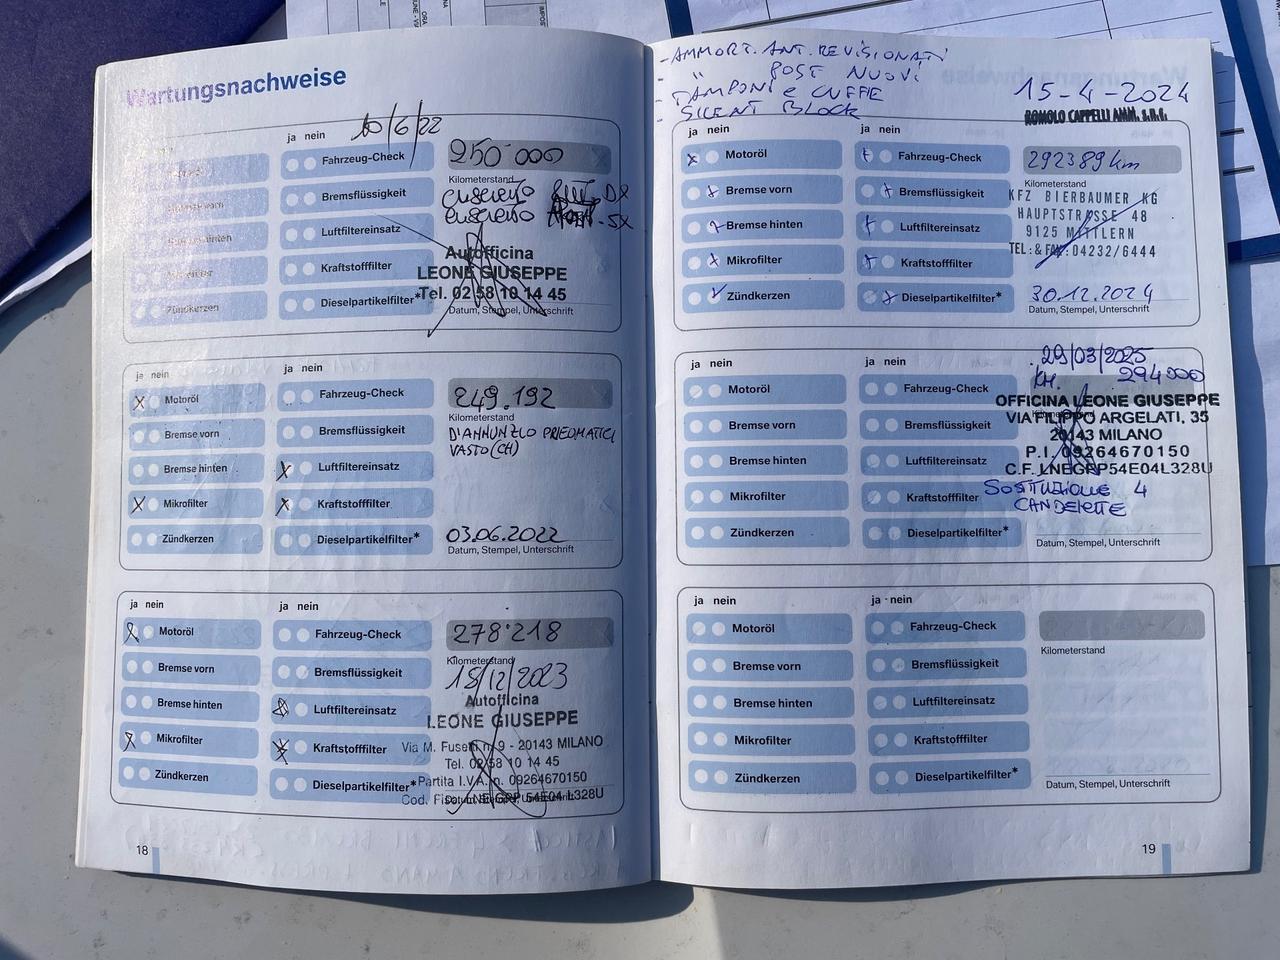 - AMMORT. ANT. REVISIONATI
" POST NUOVI
- TAMPONI e CUFFIE
- SILENT BLOCK
15-4-2024
ROMOLO CAPPELLI AMM. s.r.l.
Wartungsnachweise
ja nein
10/6/22
Fahrzeug-Check
250'000
Bremsflüssigkeit
Kilometerstand
Luftfiltereinsatz
Kraftstofffilter
Zündkerzen
Dieselpartikelfilter*
Autofficina
LEONE GIUSEPPE
Tel. 02 58 10 14 45
Datum, Stempel, Unterschrift
ja nein
Motoröl
Bremse vorn
Bremse hinten
Mikrofilter
Zündkerzen
ja nein
Fahrzeug-Check
Bremsflüssigkeit
Luftfiltereinsatz
Kraftstofffilter
Dieselpartikelfilter*
249.192
Kilometerstand
D'ANNUNZIO PNEUMATICI
VASTO (CH)
03.06.2022
Datum, Stempel, Unterschrift
ja nein
Motoröl
Bremse vorn
Bremse hinten
Mikrofilter
Zündkerzen
ja nein
Fahrzeug-Check
Bremsflüssigkeit
Luftfiltereinsatz
Kraftstofffilter
Dieselpartikelfilter*
278'218
Kilometerstand
18/12/2023
Autofficina
LEONE GIUSEPPE
Via M. Fusetti n. 9 - 20143 MILANO
Tel. 02 58 10 14 45
Partita I.V.A. n. 09264670150
Cod. Fisc. LNE GPP 54E04 L328U
Datum, Stempel, Unterschrift
18
ja nein
Motoröl
Bremse vorn
Bremse hinten
Mikrofilter
Zündkerzen
ja nein
Fahrzeug-Check
Bremsflüssigkeit
Luftfiltereinsatz
Kraftstofffilter
Dieselpartikelfilter*
292389 km
Kilometerstand
KFZ BIERBAUMER KG
HAUPTSTRASSE 48
9125 MITTLERN
TEL:&FAX:04232/6444
30.12.2024
Datum, Stempel, Unterschrift
ja nein
Motoröl
Bremse vorn
Bremse hinten
Mikrofilter
Zündkerzen
ja nein
Fahrzeug-Check
Bremsflüssigkeit
Luftfiltereinsatz
Kraftstofffilter
Dieselpartikelfilter*
29/03/2025
KM. 294000
OFFICINA LEONE GIUSEPPE
VIA FILIPPO ARGELATI, 35
20143 MILANO
P.I. 09264670150
C.F. LNEGPP54E04L328U
SOSTITUZIONE 4
CANDELETTE
Datum, Stempel, Unterschrift
ja nein
Motoröl
Bremse vorn
Bremse hinten
Mikrofilter
Zündkerzen
ja nein
Fahrzeug-Check
Bremsflüssigkeit
Luftfiltereinsatz
Kraftstofffilter
Dieselpartikelfilter*
Kilometerstand
Datum, Stempel, Unterschrift
19